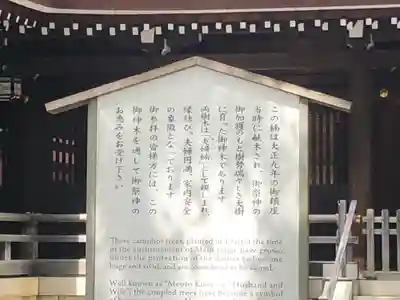 この楠は大正九年の御鎮座
当時に献木され、御祭神の
御加護のもと樹勢瑞々しき大樹
に育った御神木であります
両樹木は「夫婦楠」として親しまれ、
縁結び、夫婦円満、家内安全
の象徴となっております
御参拝の皆様方には、この
御神木を通して御祭神の
お恵みをお受け下さい
These camphor trees, planted in 1920 at the time
of the enshrinement of Meiji Jingu have grown
under the protection of the deities to become
huge and vivid, and are considered to be sacred.
Well known as "Meoto Kusu," or "Husband and
Wife," the coupled trees have become a symbol